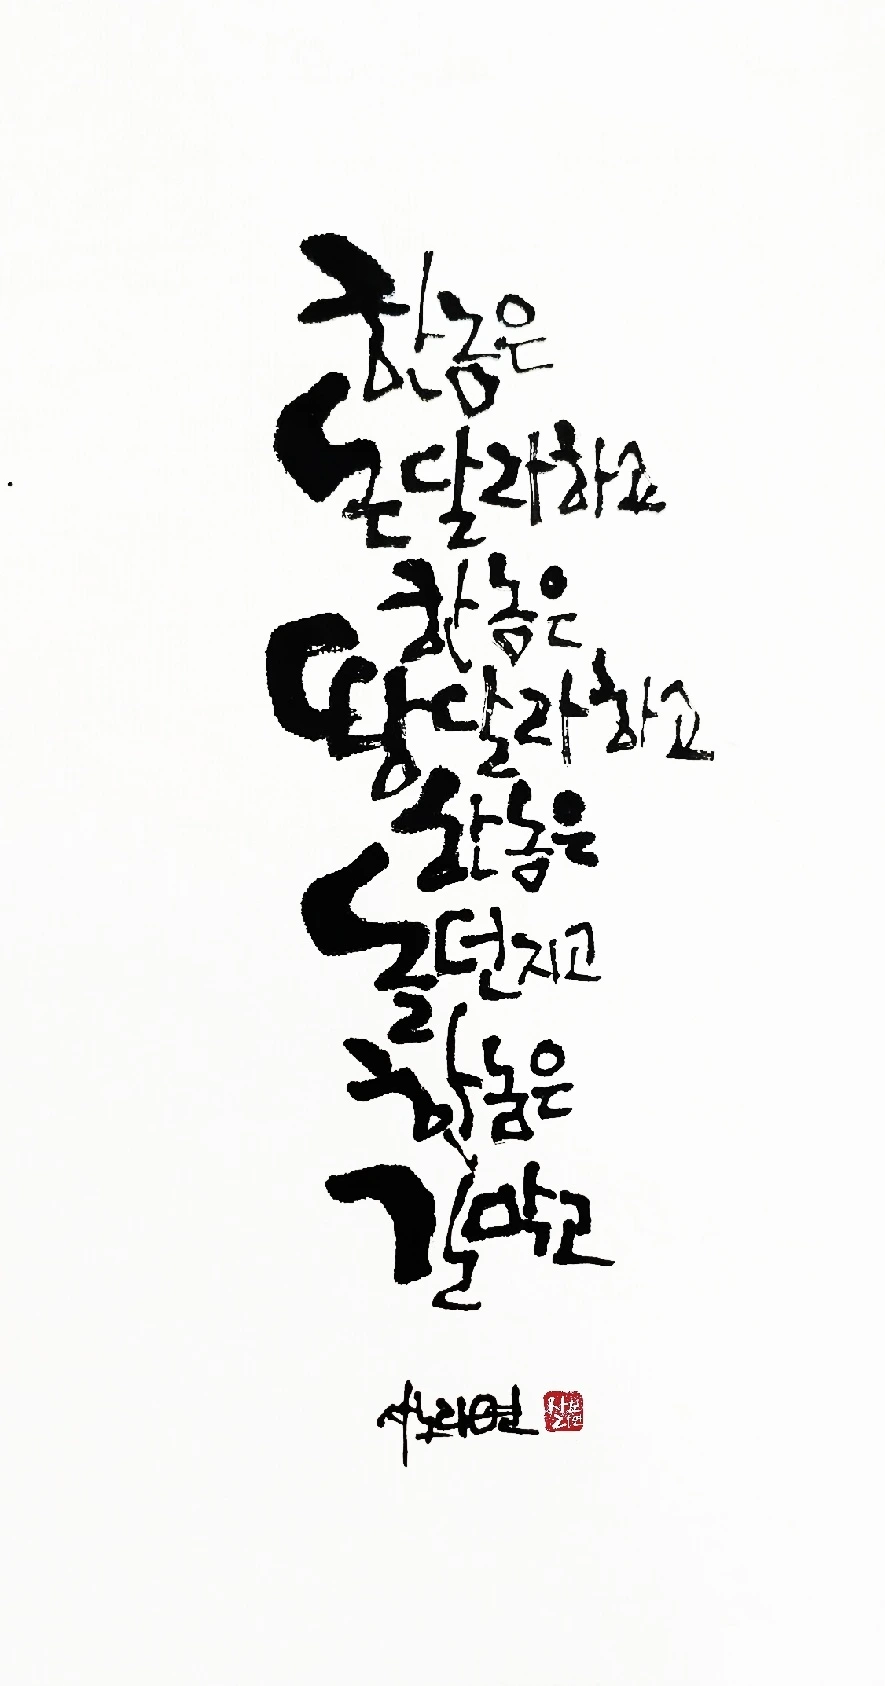 한놈은
돈달라하고
한놈은
땅달라하고
한놈은
돌던지고
한놈은
길막고